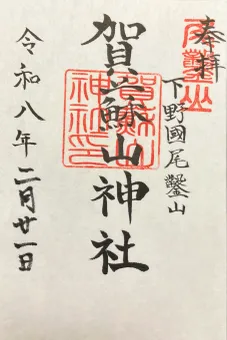 奉拝
尾鑿山
下野國尾鑿山
賀蘓山神社
賀蘇山
神社印
令和八年二月廿一日